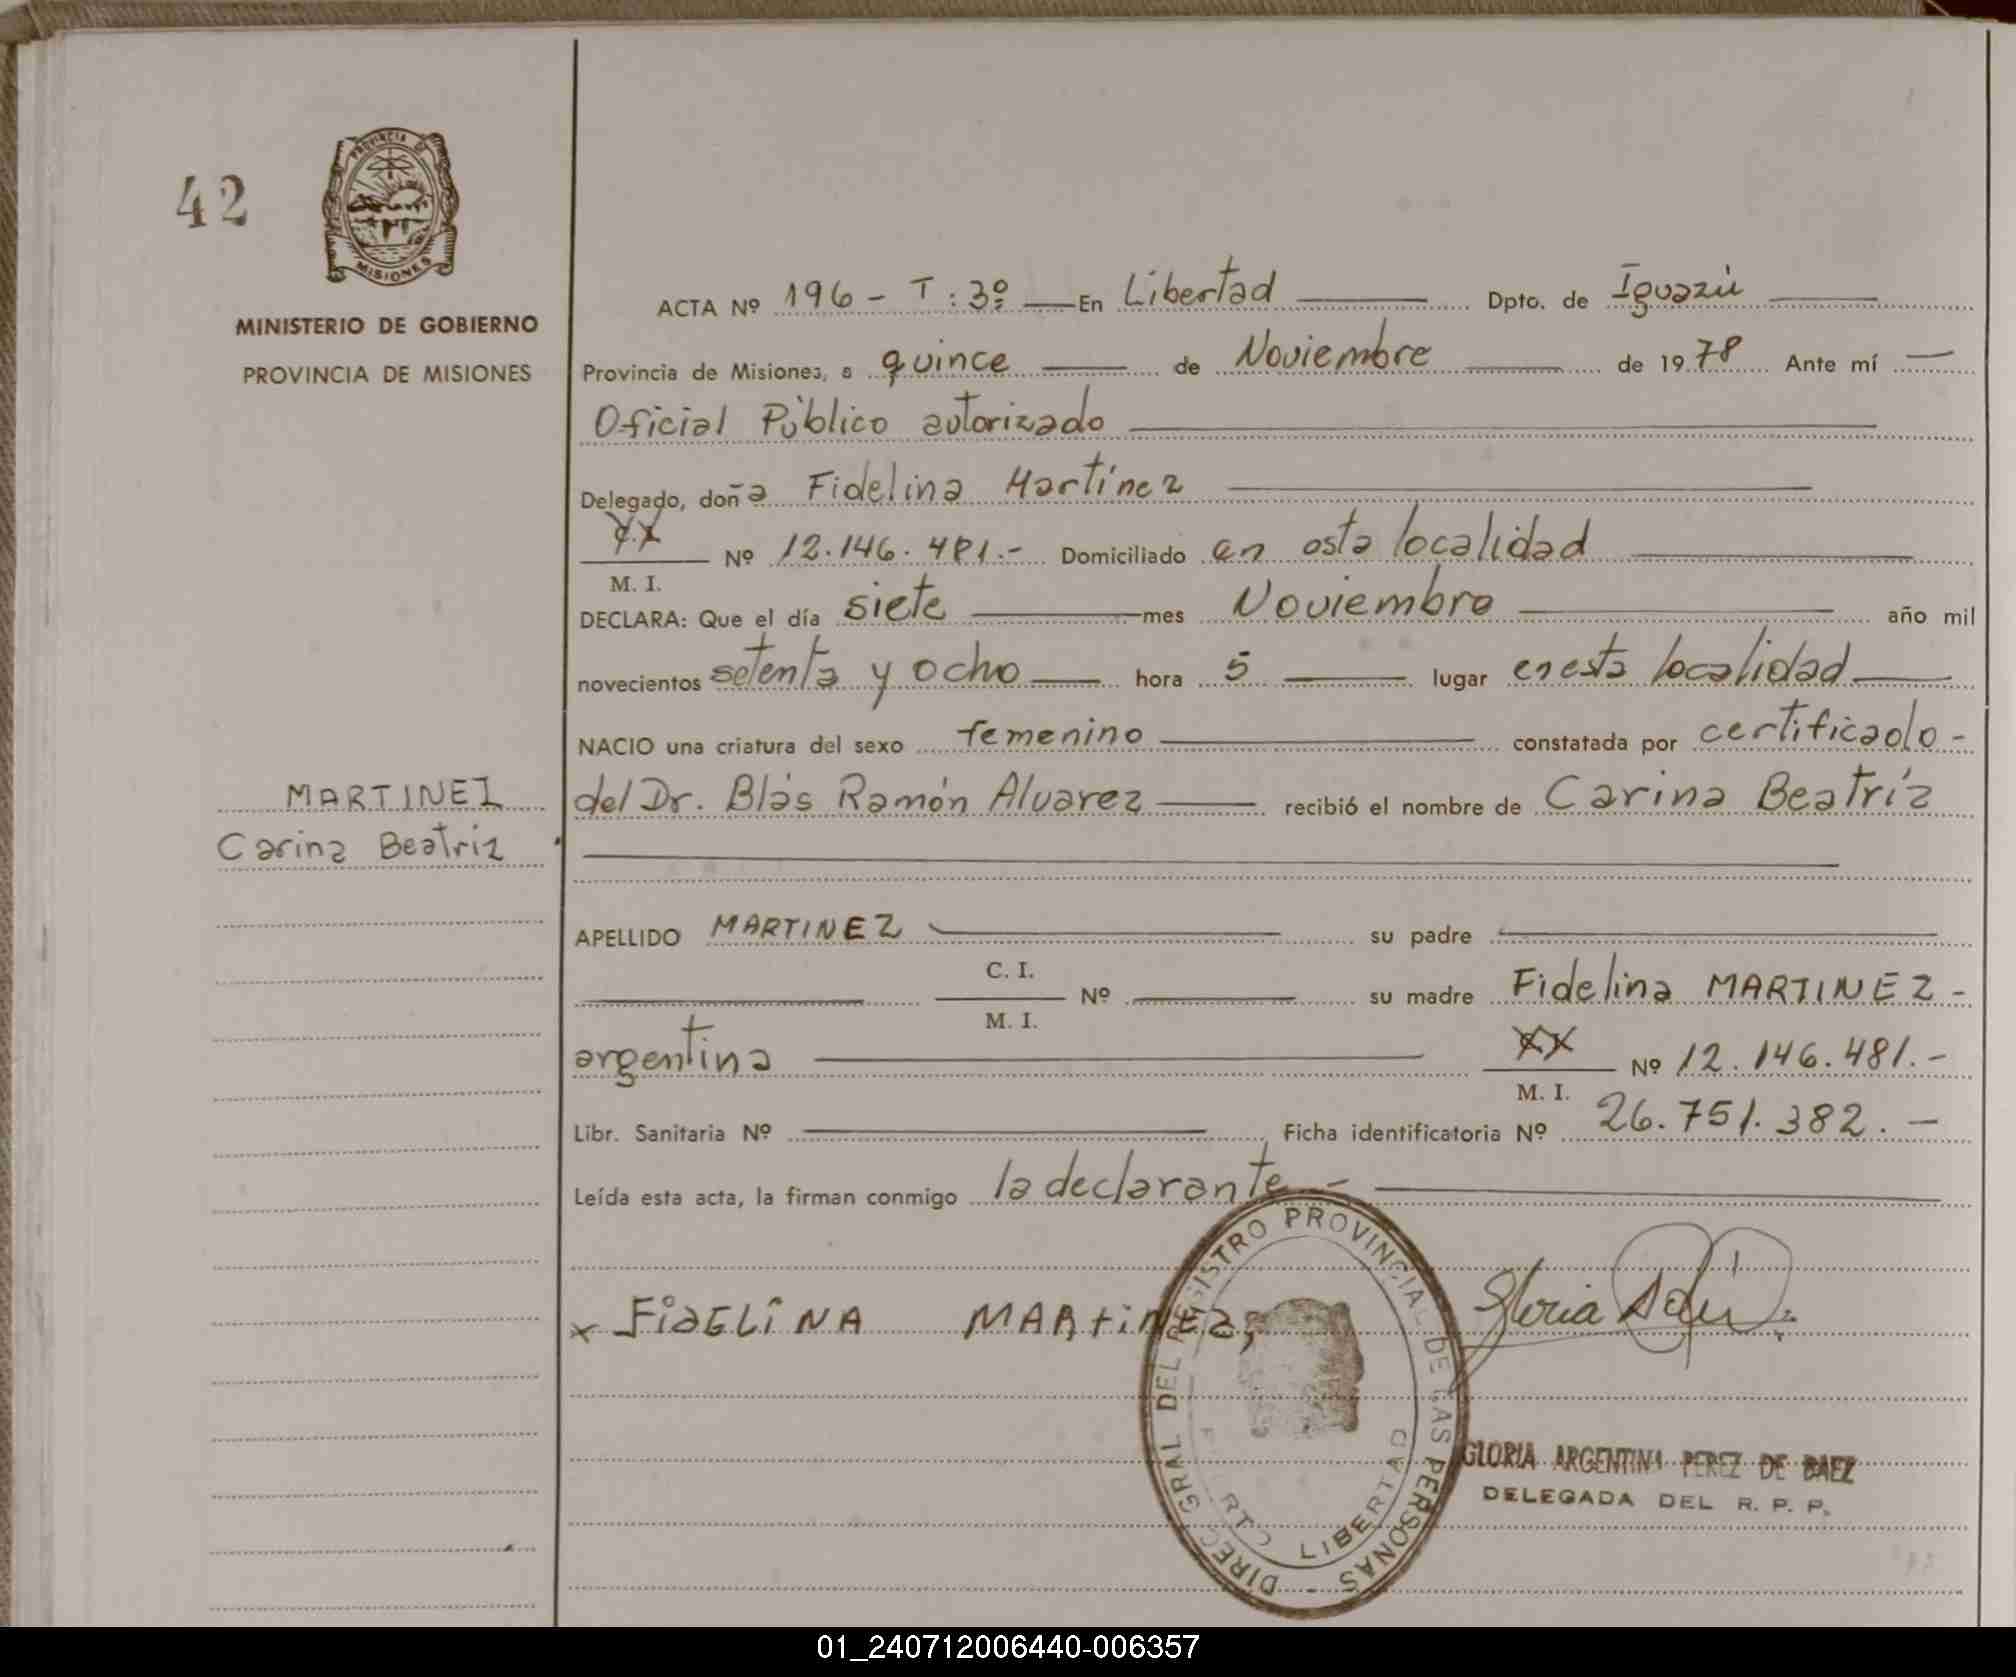 42
PROVINCIA DE
MISIONES
MINISTERIO DE GOBIERNO
PROVINCIA DE MISIONES
MARTINEZ
Carina Beatriz
ACTA Nº 196 - T: 3º En Libertad Dpto. de Iguazú
Provincia de Misiones, a quince de Noviembre de 1978 Ante mí
Oficial Público autorizado
Delegado, doña Fidelina Martínez
M. I. Nº 12.146.481.- Domiciliado en esta localidad
DECLARA: Que el día siete mes Noviembre año mil
novecientos setenta y ocho hora 5 lugar en esta localidad
NACIO una criatura del sexo femenino constatada por certificado -
del Dr. Blás Ramón Alvarez recibió el nombre de Carina Beatríz
APELLIDO MARTINEZ su padre
C. I.
M. I. Nº su madre Fidelina MARTINEZ -
argentina M. I. Nº 12.146.481.-
Libr. Sanitaria Nº Ficha identificatoria Nº 26.751.382.-
Leída esta acta, la firman conmigo la declarante -
x FidELiNA MARtinez
Gloria
DIREC. GRAL DEL REGISTRO PROVINCIAL DE LAS PERSONAS -
LIBERTAD
GLORIA ARGENTINA PEREZ DE BAEZ
DELEGADA DEL R. P. P.
01_240712006440-006357